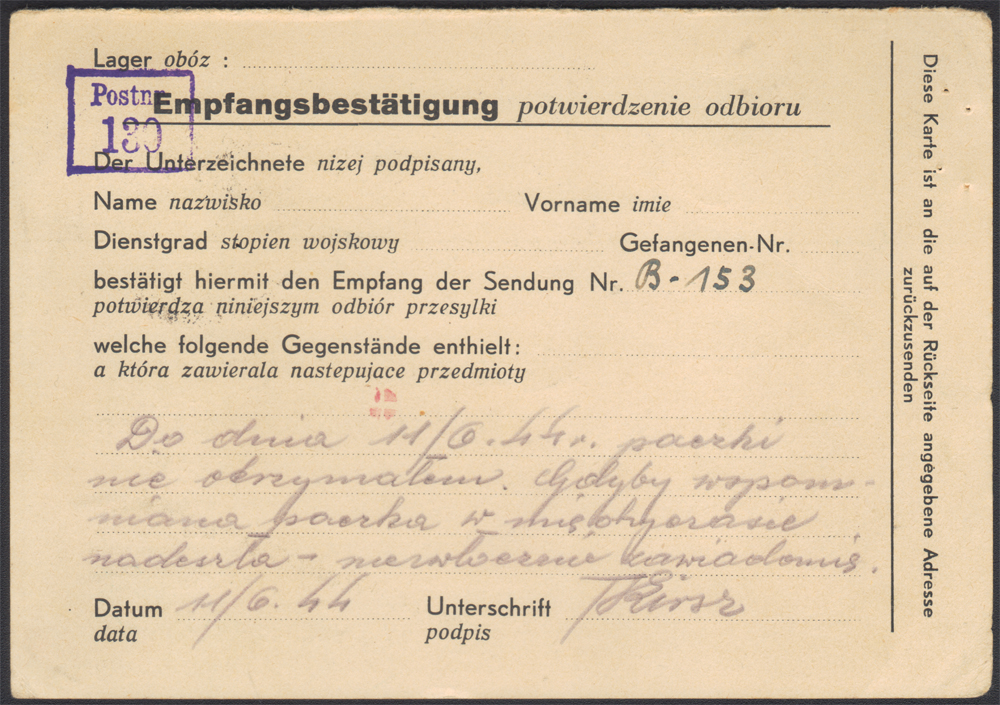 Lager obóz :
Postnr.
130
Empfangsbestätigung potwierdzenie odbioru
Der Unterzeichnete nizej podpisany,
Name nazwisko Vorname imie
Dienstgrad stopien wojskowy Gefangenen-Nr.
bestätigt hiermit den Empfang der Sendung Nr. B-153
potwierdza niniejszym odbiór przesylki
welche folgende Gegenstände enthielt:
a która zawierala nastepujace przedmioty
Do dnia 11/6.44r. paczki
nie otrzymałem. Gdyby wspom-
niana paczka w międzyczasie
nadeszła - niezwłocznie zawiadomię.
Datum 11/6.44 Unterschrift
data podpis
Diese Karte ist an die auf der Rückseite angegebene Adresse
zurückzusenden